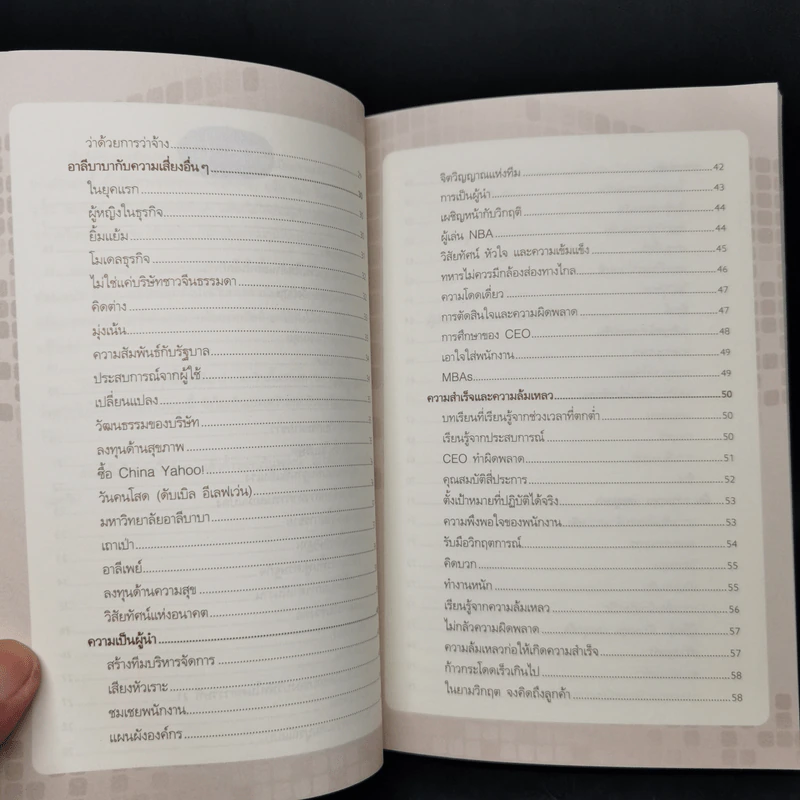 ว่าด้วยการว่าจ้าง
อาลีบาบากับความเสี่ยงอื่น ๆ
ในยุคแรก
ผู้หญิงในธุรกิจ
ยิ้มแย้ม
โมเดลธุรกิจ
ไม่ใช่แค่บริษัทชาวจีนธรรมดา
คิดต่าง
มุ่งเน้น
ความสัมพันธ์กับรัฐบาล
ประสบการณ์จากผู้ใช้
เปลี่ยนแปลง
วัฒนธรรมของบริษัท
ลงทุนด้านสุขภาพ
ซื้อ China Yahoo!
วันคนโสด (ดับเบิล อีเลฟเว่น)
มหาวิทยาลัยอาลีบาบา
เถาเป่า
อาลีเพย์
ลงทุนด้านความสุข
วิสัยทัศน์แห่งอนาคต
ความเป็นผู้นำ
สร้างทีมบริหารจัดการ
เสียงหัวเราะ
ชมเชยพนักงาน
แผนผังองค์กร
จิตวิญญาณแห่งทีม 42
การเป็นผู้นำ 43
เผชิญหน้ากับวิกฤติ 44
ผู้เล่น NBA 44
วิสัยทัศน์ หัวใจ และความเข้มแข็ง 45
ทหารไม่ควรมีกล้องส่องทางไกล 46
ความโดดเดี่ยว 47
การตัดสินใจและความผิดพลาด 47
การศึกษาของ CEO 48
เอาใจใส่พนักงาน 49
MBAs 49
ความสำเร็จและความล้มเหลว 50
บทเรียนที่เรียนรู้จากช่วงเวลาที่ตกต่ำ 50
เรียนรู้จากประสบการณ์ 50
CEO ทำผิดพลาด 51
คุณสมบัติสี่ประการ 52
ตั้งเป้าหมายที่ปฏิบัติได้จริง 53
ความพึงพอใจของพนักงาน 53
รับมือวิกฤตการณ์ 54
คิดบวก 55
ทำงานหนัก 55
เรียนรู้จากความล้มเหลว 56
ไม่กลัวความผิดพลาด 57
ความล้มเหลวก่อให้เกิดความสำเร็จ 57
ก้าวกระโดดเร็วเกินไป 58
ในยามวิกฤต จงคิดถึงลูกค้า 58